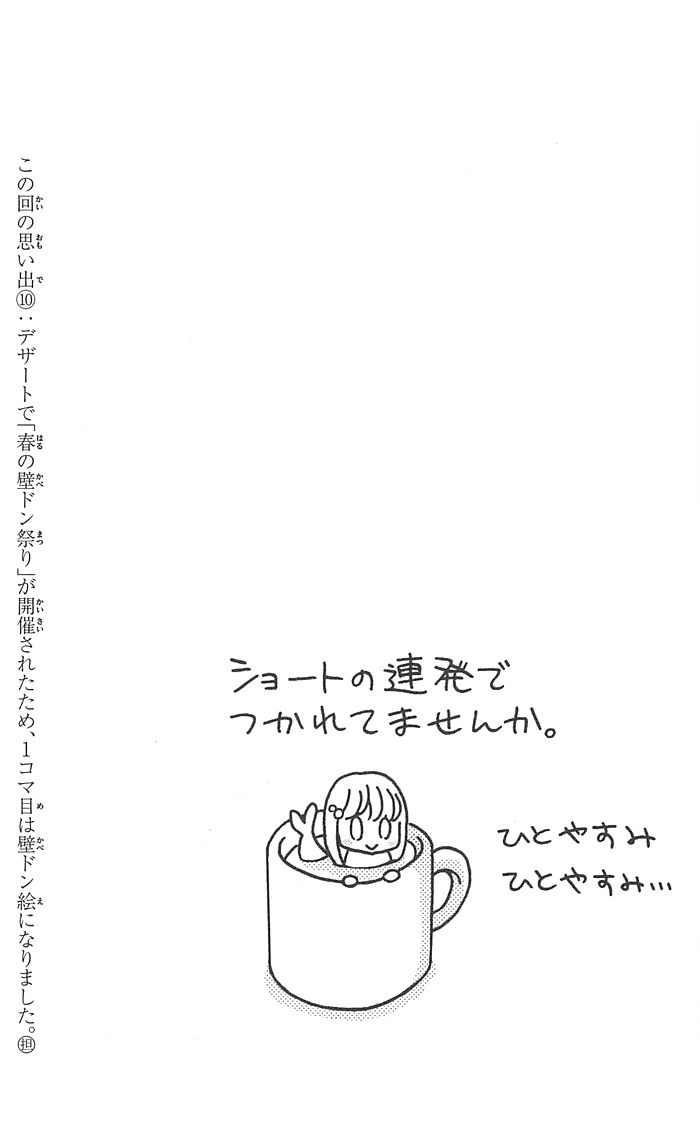 ショートの連発で
つかれてませんか。
ひとやすみ
ひとやすみ…
この回の思い出⑩：デザートで「春の壁ドン祭り」が開催されたため、1コマ目は壁ドン絵になりました。㊟